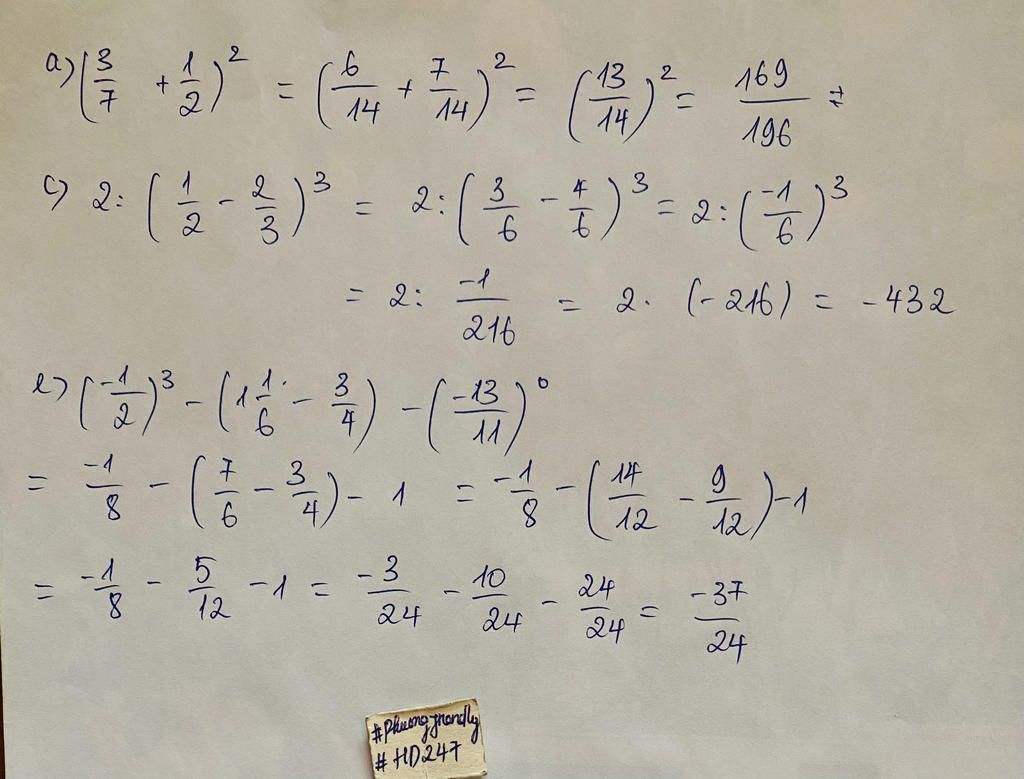 a) (3/7 + 1/2)² = (6/14 + 7/14)² = (13/14)² = 169/196
c) 2: (1/2 - 2/3)³ = 2: (3/6 - 4/6)³ = 2: (-1/6)³
= 2: -1/216 = 2. (-216) = -432
e) (-1/2)³ - (1 1/6 - 3/4) - (-13/11)⁰
= -1/8 - (7/6 - 3/4) - 1 = -1/8 - (14/12 - 9/12) - 1
= -1/8 - 5/12 - 1 = -3/24 - 10/24 - 24/24 = -37/24
#HD247